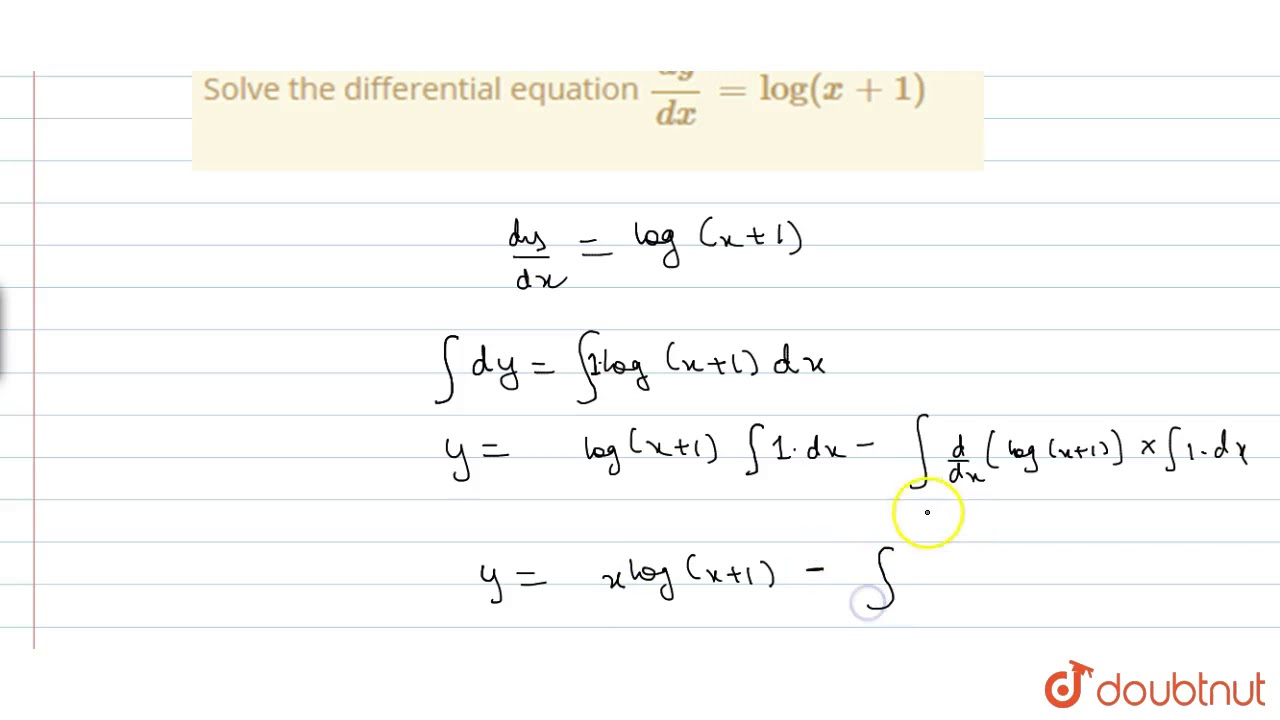 Solve the differential equation dy/dx = log(x + 1)
dy/dx = log (x+1)
∫ dy = ∫ 1·log (x+1) dx
y = log(x+1) ∫ 1·dx − ∫ d/dx (log(x+1)) × ∫ 1·dx
y = x log (x+1) − ∫
doubtnut